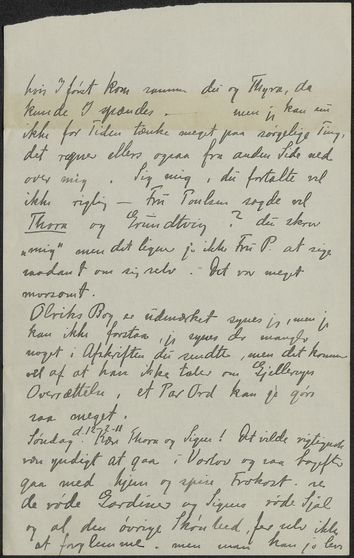 hvis I først kom sammen du og Thyra, da
kunde I spændes. — men jeg kan nu
ikke for Tiden tænke meget paa sørgelige Ting,
det regner ellers ogsaa fra anden Side ned
over mig. Sig mig, du fortalte vel
ikke rigtig — Fru Poulsen sagde vel
Thora og Grundtvig? du skrev
"mig" men det ligner jo ikke Fru P. at sige
saadant om sig selv. — Det var meget
morsomt.
Olriks Bog er udmærket synes jeg, men jeg
kan ikke forstaa, jeg synes der mangler
noget i Afskriften du sendte, men det kommer
vel af at han ikke taler om Gjellerups
Oversættelse, et Par Ord kan jo gøre
saa meget.
Søndag d. 12
Kære Thora og Signe! Det vilde rigtignok
være yndigt at gaa i Vartov og saa bagefter
gaa med hjem og spise Frokost. se
de røde Gardiner og Signes røde Sjal
og al den øvrige Skønhed, for selv ikke
at forglemme. men man kan jo leve